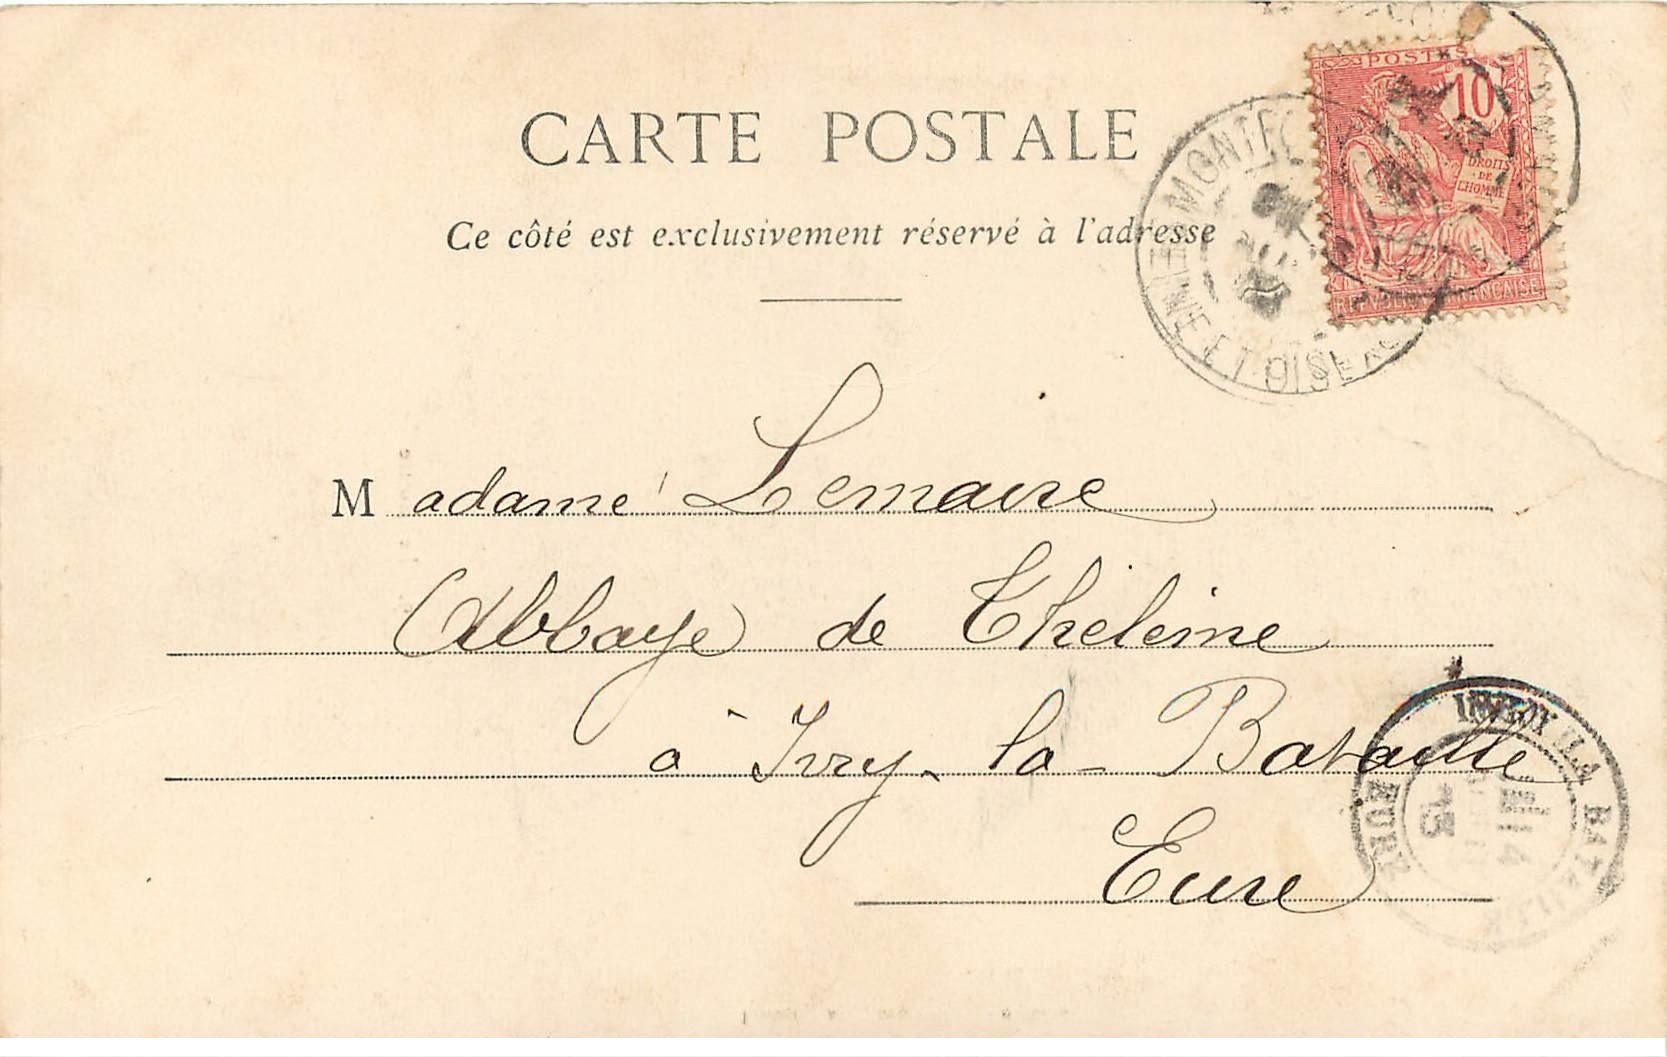 CARTE POSTALE
Ce côté est exclusivement réservé à l'adresse
POSTES
10
DROITS
DE
L'HOMME
REPUBLIQUE FRANCAISE
SEINE ET OISE
Madame Lemaire
Abbaye de Thélème
à Ivry-la-Bataille
Eure
IVRY LA BATAILLE
EURE
14